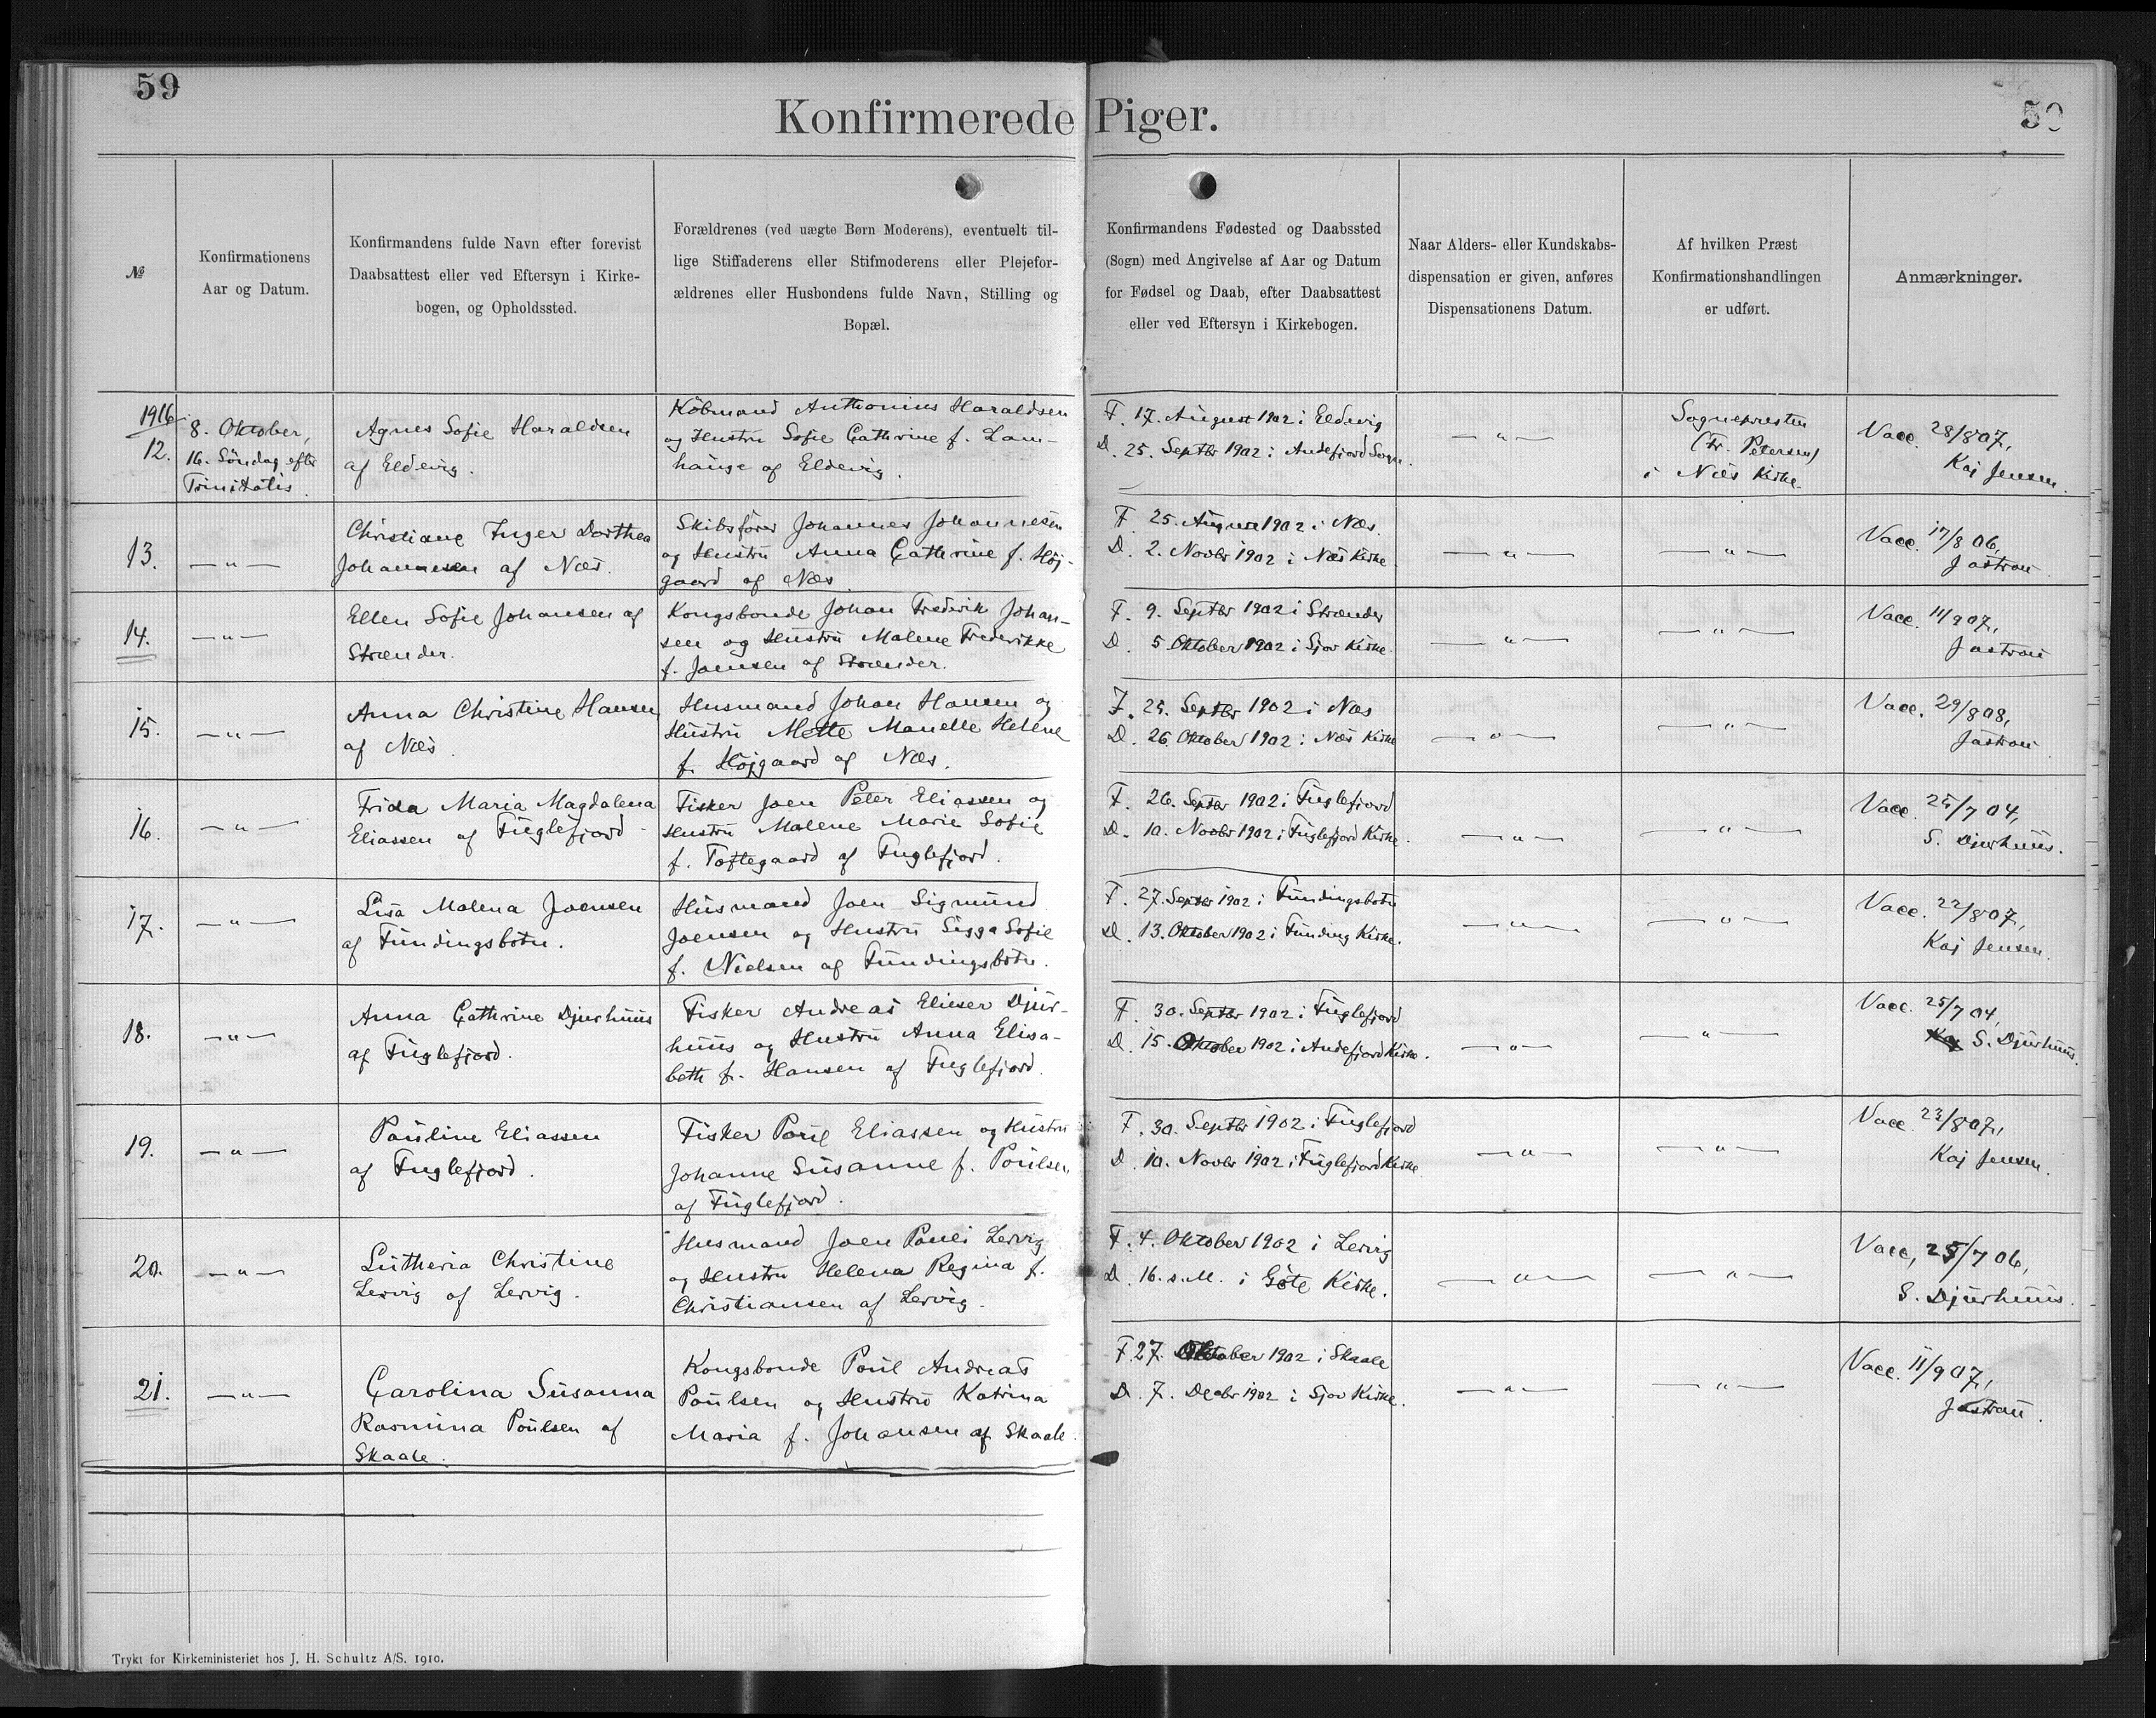 59
59
Konfirmerede Piger.
№
Konfirmationens
Aar og Datum.
Konfirmandens fulde Navn efter forevist
Daabsattest eller ved Eftersyn i Kirke-
bogen, og Opholdssted.
Forældrenes (ved uægte Børn Moderens), eventuelt til-
lige Stiffaderens eller Stifmoderens eller Plejefor-
ældrenes eller Husbondens fulde Navn, Stilling og
Bopæl.
Konfirmandens Fødested og Daabssted
(Sogn) med Angivelse af Aar og Datum
for Fødsel og Daab, efter Daabsattest
eller ved Eftersyn i Kirkebogen.
Naar Alders- eller Kundskabs-
dispensation er given, anføres
Dispensationens Datum.
Af hvilken Præst
Konfirmationshandlingen
er udført.
Anmærkninger.
1916
12.
8. Oktober,
16. Søndag efter
Trinitatis.
Agnes Sofie Haraldsen
af Eldevig.
Købmand Anthonius Haraldsen
og Hustru Sofie Cathrine f. Lam-
hauge af Eldevig.
F. 17. August 1902 i Eldevig
D. 25. Septbr 1902 i Andefjord Sogn.
— " —
Sognepresten
(Fr. Petersen)
i Næs Kirke.
Vacc. 28/8 07,
Kaj Jensen.
13.
— " —
Christiane Inger Dorthea
Johannesen af Næs.
Skibsfører Johannes Johannesen
og Hustru Anna Cathrine f. Høj-
gaard af Næs.
F. 25. August 1902 i Næs.
D. 2. Novbr 1902 i Næs Kirke.
— " —
— " —
Vacc. 17/8 06,
Jastrau
14.
— " —
Ellen Sofie Johansen af
Strænder.
Kongsbonde Johan Frederik Johan-
sen og Hustru Malene Frederikke
f. Joensen af Strænder.
F. 9. Septbr 1902 i Strænder
D. 5 Oktober 1902 i Sjov Kirke.
— " —
— " —
Vacc. 11/9 07,
Jastrau
15.
— " —
Anna Christine Hansen
af Næs.
Husmand Johan Hansen og
Hustru Mette Manelle Helene
f. Højgaard af Næs.
F. 25. Septbr 1902 i Næs
D. 26. Oktober 1902 i Næs Kirke
— " —
— " —
Vacc. 29/8 08,
Jastrau
16.
— " —
Frida Maria Magdalena
Eliassen af Fuglefjord
Fisker Joen Peter Eliassen og
Hustru Malene Marie Sofie
f. Toftegaard af Fuglefjord.
F. 26. Septbr 1902 i Fuglefjord
D. 10. Novbr 1902 i Fuglefjord Kirke.
— " —
— " —
Vacc. 25/7 04,
S. Djurhuus.
17.
— " —
Lisa Malena Joensen
af Fundingsbotn.
Husmand Joen Sigmund
Joensen og Hustru Sigga Sofie
f. Nielsen af Fundingsbotn.
F. 27. Septbr 1902 i Fundingsbotn
D. 13. Oktober 1902 i Funding Kirke.
— " —
— " —
Vacc. 22/8 07,
Kaj Jensen.
18.
— " —
Anna Cathrine Djurhuus
af Fuglefjord.
Fisker Andreas Elieser Djur-
huus og Hustru Anna Elisa-
beth f. Hansen af Fuglefjord.
F. 30. Septbr 1902 i Fuglefjord
D. 15. Oktober 1902 i Andefjord Kirke.
— " —
— " —
Vacc. 25/7 04,
Kaj S. Djurhuus.
19.
— " —
Pauline Eliassen
af Fuglefjord.
Fisker Poul Eliassen og Hustru
Johanne Susanne f. Poulsen
af Fuglefjord.
F. 30. Septbr 1902 i Fuglefjord
D. 10. Novbr 1902 i Fuglefjord Kirke
— " —
— " —
Vacc. 23/8 07,
Kaj Jensen.
20.
— " —
Lutheria Christine
Lervig af Lervig.
Husmand Joen Pauli Lervig
og Hustru Helena Regina f.
Christiansen af Lervig.
F. 4. Oktober 1902 i Lervig
D. 16. s. M. i Göte Kirke.
— " —
— " —
Vacc, 25/7 06,
S. Djurhuus.
21.
— " —
Carolina Susanna
Rasmina Poulsen af
Skaale.
Kongsbonde Poul Andreas
Poulsen og Hustru Katrina
Maria f. Johansen af Skaale.
F. 27. Oktober 1902 i Skaale
D. 7. Decbr 1902 i Sjov Kirke.
— " —
— " —
Vacc. 11/9 07,
Jastrau.
Trykt for Kirkeministeriet hos J. H. Schultz A/S. 1910.